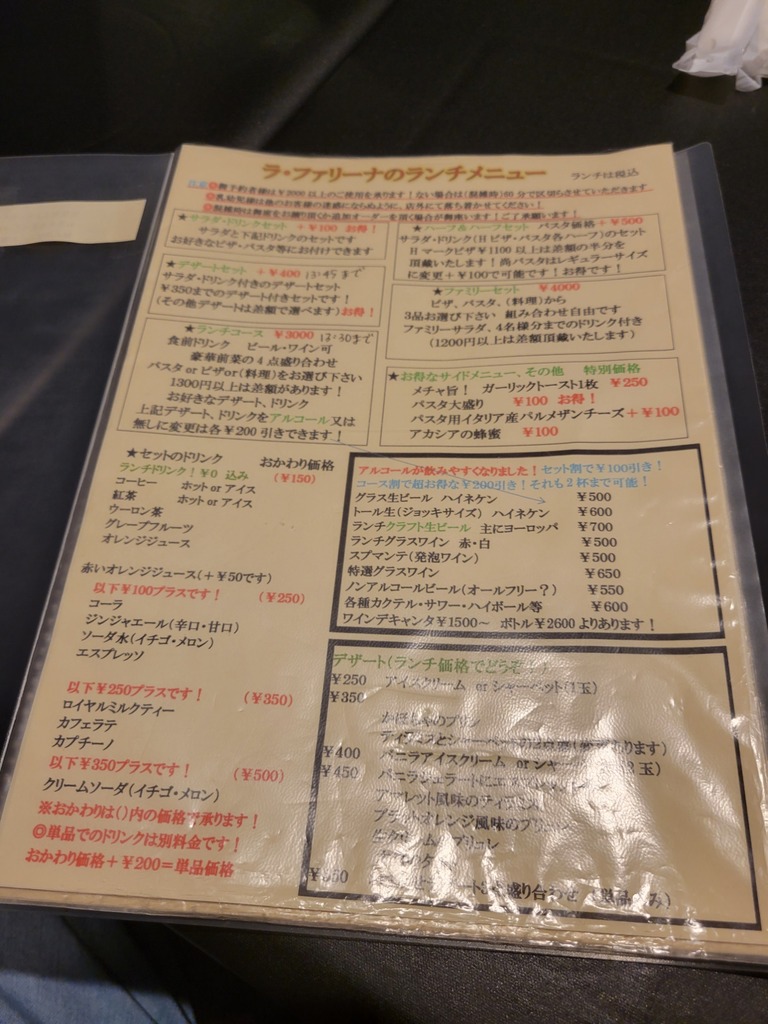 ラ・ファリーナのランチメニュー
ランチは税込
◎乳幼児様は他のお客様の迷惑にならぬように、店外にて落ち着かせてください！
★サラダ・ドリンクセット +￥100 お得！
サラダと下記ドリンクのセットです
お好きなピザ・パスタ等にお付けできます
★デザートセット +￥400 13:45まで
サラダ・ドリンク付きのデザートセット
￥350までのデザート付きセットです！
(その他デザートは差額で選べます)お得！
★ランチコース ￥3000 13:30まで
食前ドリンク ビール・ワイン可
豪華前菜の4点盛り合わせ
パスタ or ピザor(料理)をお選び下さい
1300円以上は差額があります！
お好きなデザート、ドリンク
上記デザート、ドリンクをアルコール又は
無しに変更は各￥200引きできます！
★ハーフ&ハーフセット パスタ価格+￥500
サラダ・ドリンク(Hピザ・パスタ各ハーフ)のセット
Hマークピザ￥1100以上は差額の半分を
頂戴いたします！尚パスタはレギュラーサイズ
に変更+￥100で可能です！お得です！
★ファミリーセット ￥4000
ピザ、パスタ、(料理)から
3品お選び下さい 組み合わせ自由です
ファミリーサラダ、4名様分までのドリンク付き
(1200円以上は差額頂戴いたします)
★お得なサイドメニュー、その他 特別価格
メチャ旨！ ガーリックトースト1枚 ￥250
パスタ大盛り ￥100 お得！
パスタ用イタリア産パルメザンチーズ+￥100
アカシアの蜂蜜 ￥100
★セットのドリンク おかわり価格
ランチドリンク！￥0 込み (￥150)
コーヒー ホット or アイス
紅茶 ホット or アイス
ウーロン茶
グレープフルーツ
オレンジジュース
赤いオレンジジュース(+￥50です)
以下￥100プラスです！ (￥250)
コーラ
ジンジャエール(辛口・甘口)
ソーダ水(イチゴ・メロン)
エスプレッソ
以下￥250プラスです！ (￥350)
ロイヤルミルクティー
カフェラテ
カプチーノ
以下￥350プラスです！ (￥500)
クリームソーダ(イチゴ・メロン)
※おかわりは()内の価格で承ります！
◎単品でのドリンクは別料金です！
おかわり価格+￥200=単品価格
アルコールが飲みやすくなりました！セット割で￥100引き！
コース割で超お得な￥200引き！それも2杯まで可能！
グラス生ビール ハイネケン ￥500
トール生(ジョッキサイズ) ハイネケン ￥600
ランチクラフト生ビール 主にヨーロッパ ￥700
ランチグラスワイン 赤・白 ￥500
スプマンテ(発泡ワイン) ￥500
特選グラスワイン ￥650
ノンアルコールビール(オールフリー？) ￥550
各種カクテル・サワー・ハイボール等 ￥600
ワインデキャンタ￥1500～ ボトル￥2600よりあります！
デザート(ランチ価格でどうぞ
￥250 アイスクリーム or シャーベット(1玉)
￥350
かぼちゃのプリン
￥400 バニラアイスクリーム or
￥450 バニラジェラートに
風味の
ブラッドオレンジ風味の
盛り合わせ